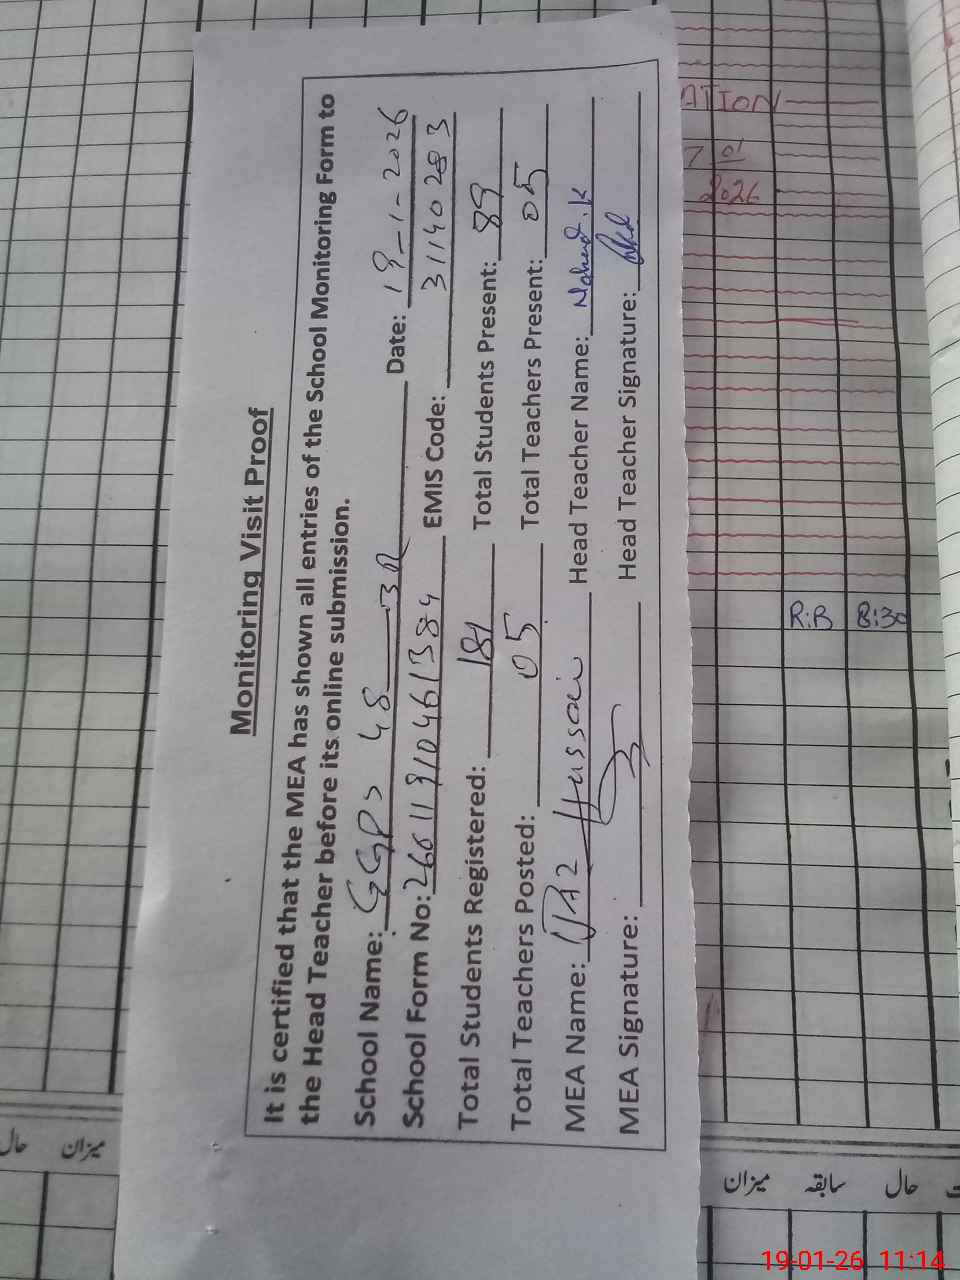 Monitoring Visit Proof
It is certified that the MEA has shown all entries of the School Monitoring Form to
the Head Teacher before its online submission.
School Name: GGPS 48 3R Date: 19-1-2026
School Form No: EMIS Code: 31140283
Total Students Registered: 181 Total Students Present: 89
Total Teachers Posted: 05 Total Teachers Present: 05
MEA Name: Hussain Head Teacher Name:
MEA Signature: Head Teacher Signature:
ATION
7 01
2026
R:B 8:30
میزان حال
میزان سابقہ حال
19-01-26 11:14